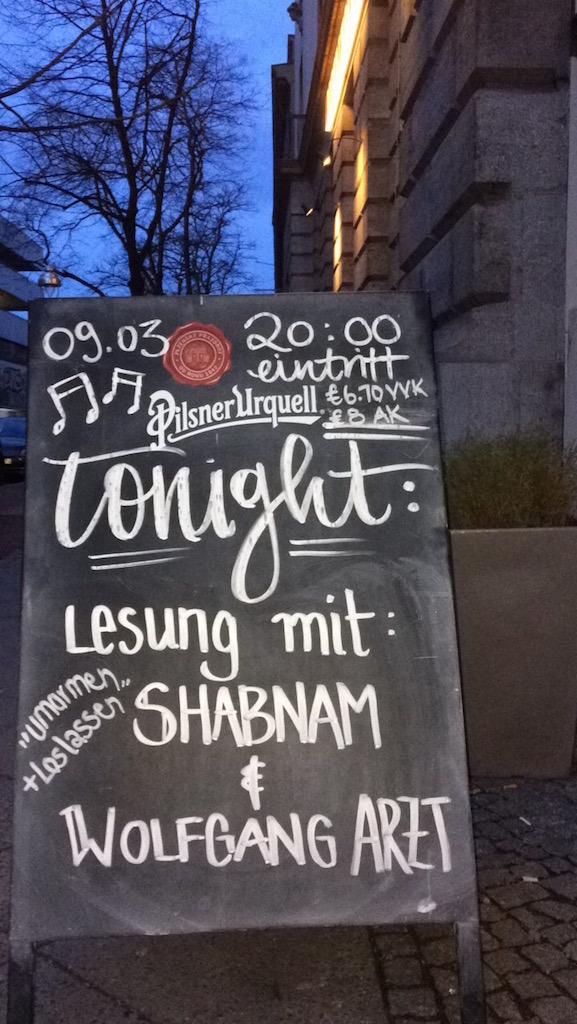 09.03
20:00
eintritt
€6.70 VVK
€8 AK
Pilsner Urquell
tonight:
Lesung mit:
„umarmen"
+ Loslassen
SHABNAM
&
WOLFGANG ARZT